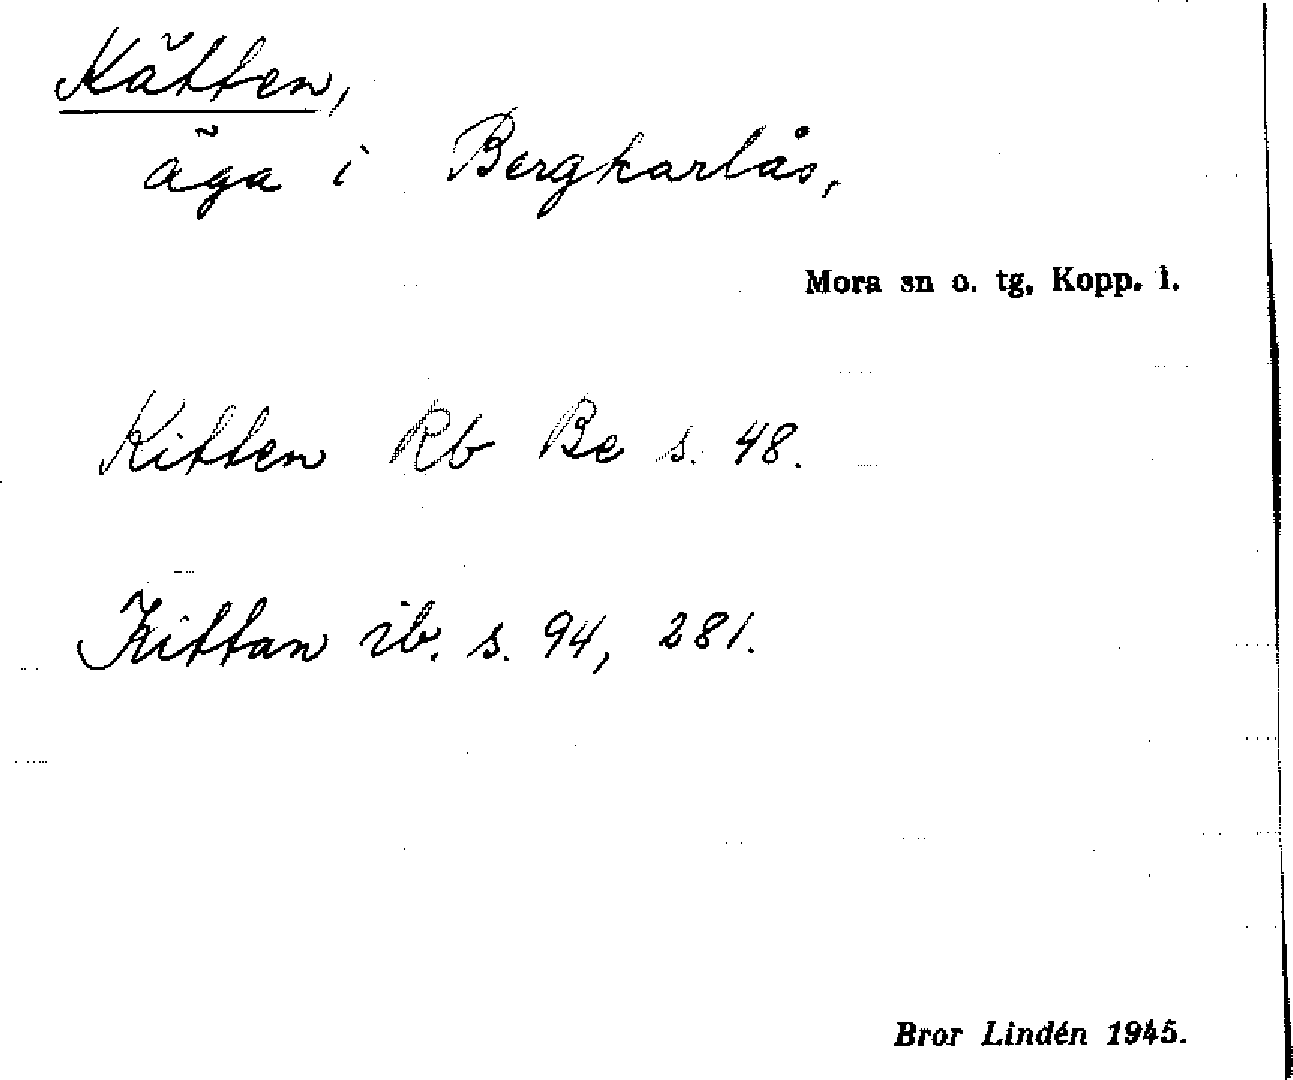 Kätten,
äga i Bergkarlås,
Mora sn o. tg, Kopp. l.
Kitten Rb Be s. 48.
Kittan ib. s. 94, 281.
Bror Lindén 1945.